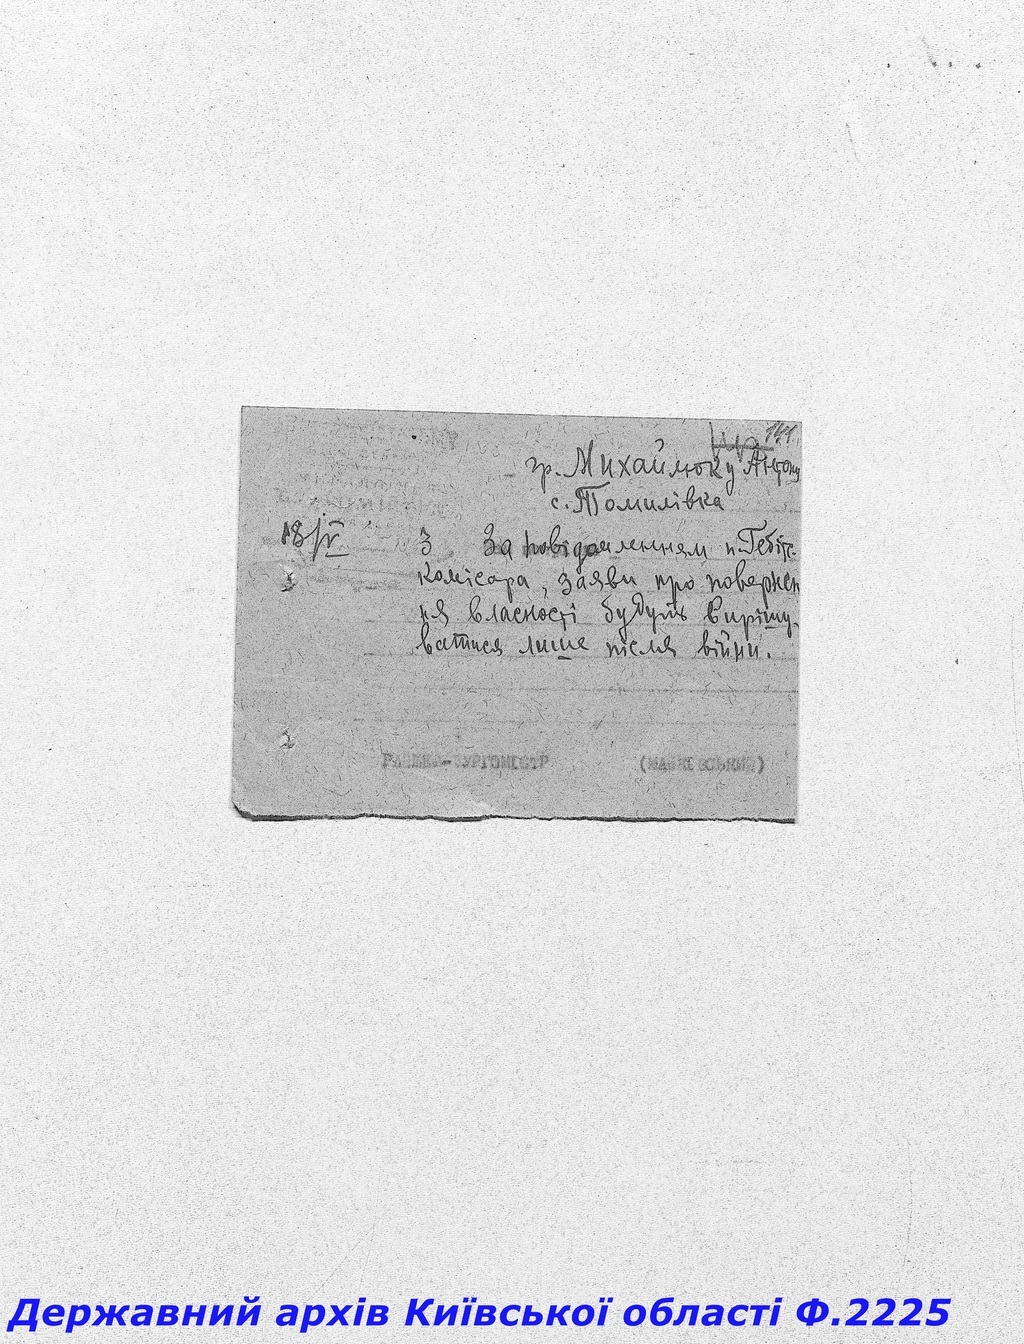 141
гр. Михаймоку Антону
с. Томилівка
18/IV З За повідомленням п. Гебіт-
комісара, заяви про повернен
ня власності будуть вирішу-
ватися лише після війни.
РАЙШЕФ-БУРГОМІСТР (МАЗКІВСЬКИЙ)
Державний архів Київської області Ф.2225